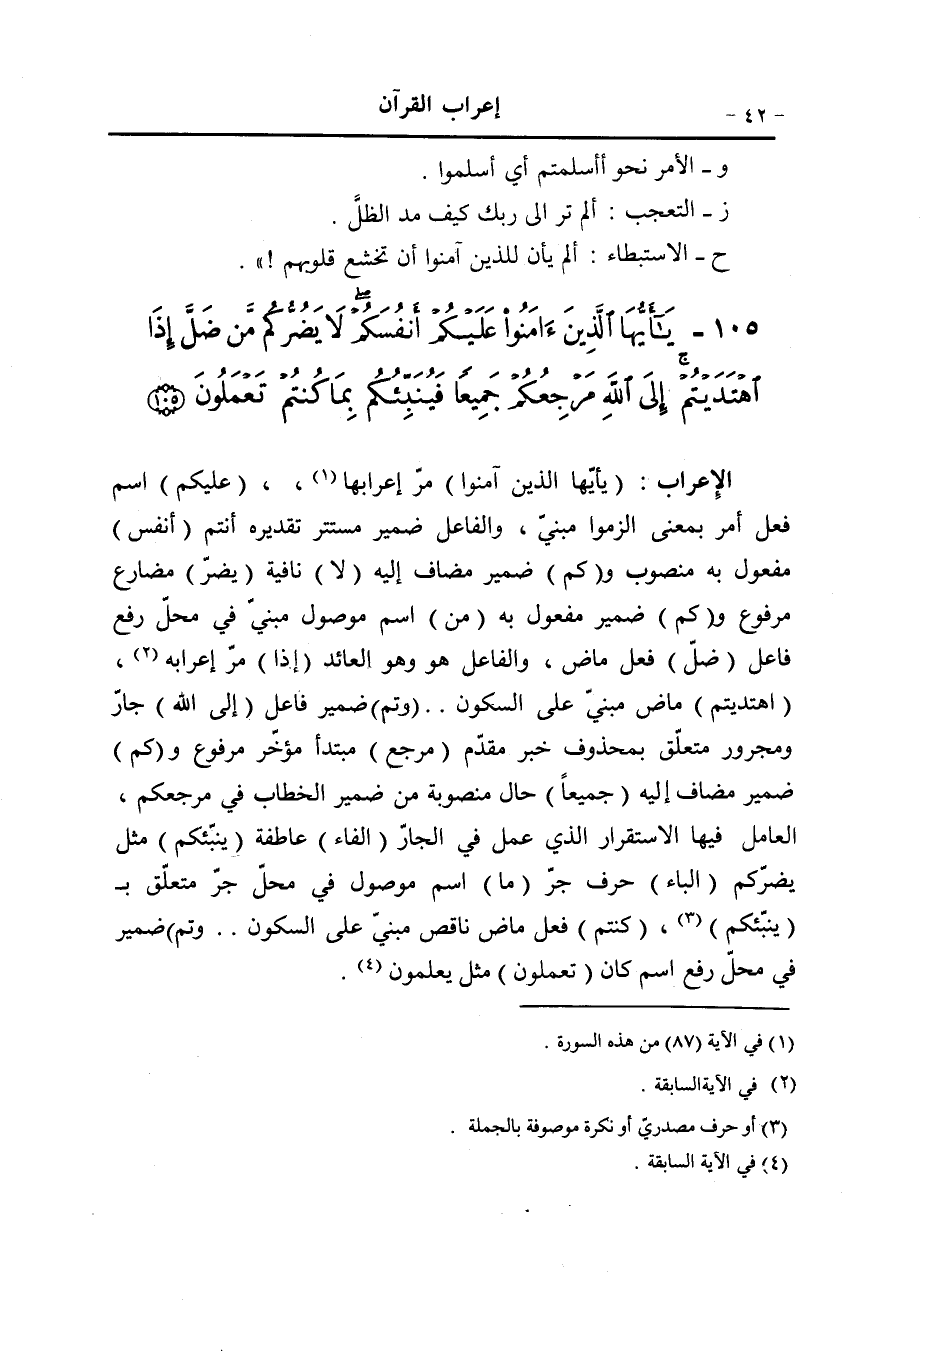 - ٤٢ - إعراب القرآن
و ـ الأمر نحو أأسلمتم أي أسلموا .
ز ـ التعجب : ألم تر الى ربك كيف مد الظلَّ .
ح ـ الاستبطاء : ألم يأن للذين آمنوا أن تخشع قلوبهم !» .
١٠٥ - يَـٰٓأَيُّهَا ٱلَّذِينَ ءَامَنُوا۟ عَلَيْكُمْ أَنفُسَكُمْ ۖ لَا يَضُرُّكُم مَّن ضَلَّ إِذَا
ٱهْتَدَيْتُمْ ۚ إِلَى ٱللَّهِ مَرْجِعُكُمْ جَمِيعًا فَيُنَبِّئُكُم بِمَا كُنتُمْ تَعْمَلُونَ ١٠٥
الإعراب : ( يأيّها الذين آمنوا ) مرّ إعرابها (١) ، ، ( عليكم ) اسم
فعل أمر بمعنى الزموا مبنيّ ، والفاعل ضمير مستتر تقديره أنتم ( أنفس )
مفعول به منصوب و( كم ) ضمير مضاف إليه ( لا ) نافية ( يضرّ ) مضارع
مرفوع و( كم ) ضمير مفعول به ( من ) اسم موصول مبنيّ في محلّ رفع
فاعل ( ضلّ ) فعل ماض ، والفاعل هو وهو العائد ( إذا ) مرّ إعرابه (٢) ،
( اهتديتم ) ماض مبنيّ على السكون . . (وتم)ضمير فاعل ( إلى الله ) جارّ
ومجرور متعلّق بمحذوف خبر مقدّم ( مرجع ) مبتدأ مؤخّر مرفوع و ( كم )
ضمير مضاف إليه ( جميعاً ) حال منصوبة من ضمير الخطاب في مرجعكم ،
العامل فيها الاستقرار الذي عمل في الجارّ ( الفاء ) عاطفة ( ينبّئكم ) مثل
يضرّكم ( الباء ) حرف جرّ ( ما ) اسم موصول في محلّ جرّ متعلّق بـ
( ينبّئكم ) (٣) ، ( كنتم ) فعل ماض ناقص مبنيّ على السكون . . وتم)ضمير
في محلّ رفع اسم كان ( تعملون ) مثل يعلمون (٤) .
(١) في الآية (٨٧) من هذه السورة .
(٢) في الآيةالسابقة .
(٣) أو حرف مصدريّ أو نكرة موصوفة بالجملة .
(٤) في الآية السابقة .